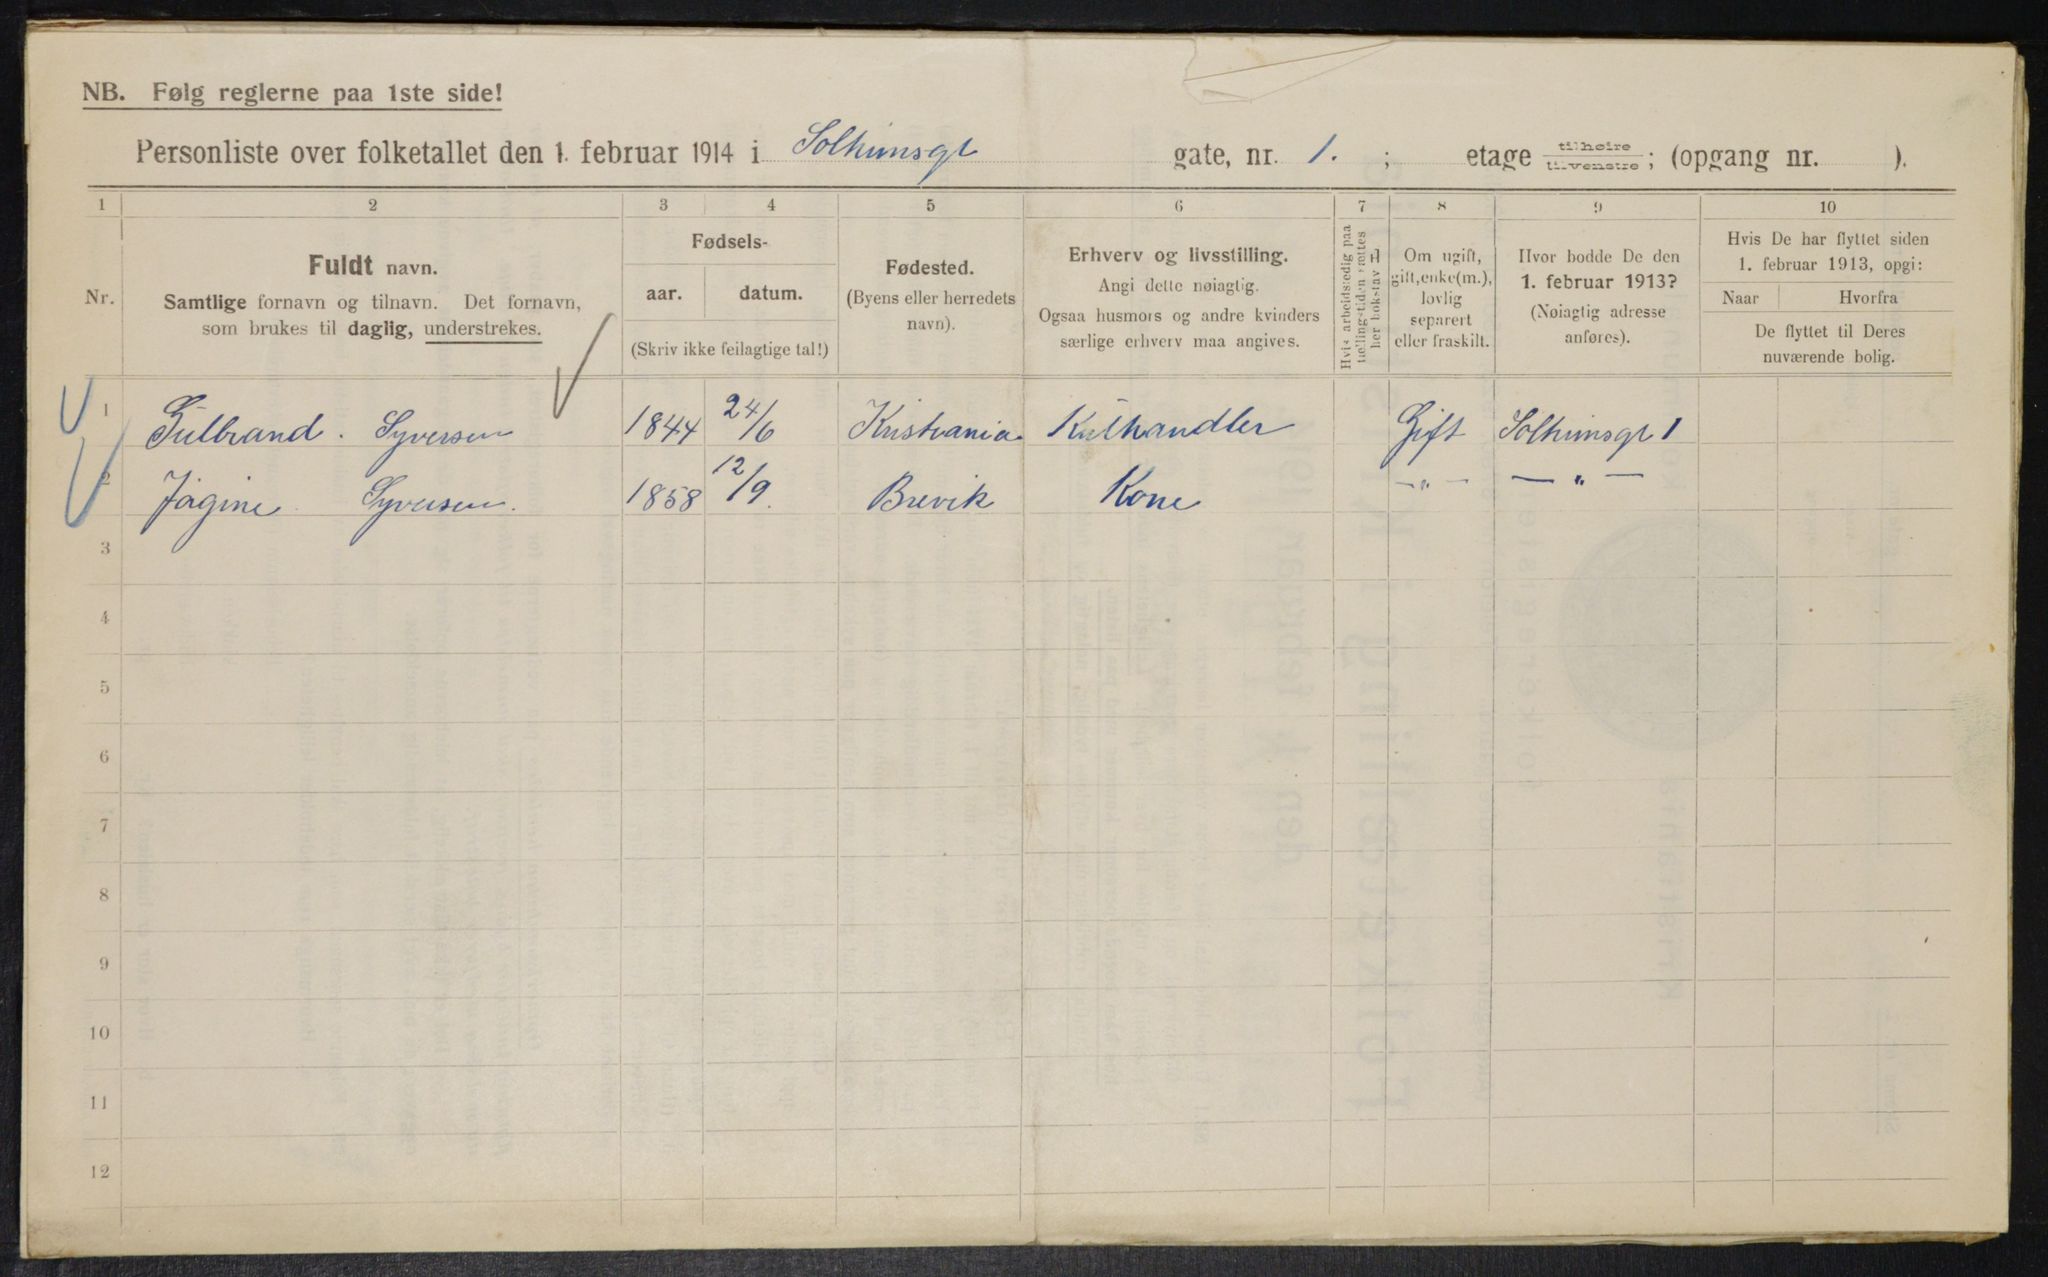 NB. Følg reglerne paa 1ste side!
Personliste over folketallet den 1. februar 1914 i Solhimsgt gate, nr. 1. ; etage tilhøire tilvenstre; (opgang nr. ).
1 2 3 4 5 6 7 8 9 10
Nr.
Fuldt navn.
Samtlige fornavn og tilnavn. Det fornavn,
som brukes til daglig, understrekes.
Fødsels-
aar. datum.
(Skriv ikke feilagtige tal!)
Fødested.
(Byens eller herredets
navn).
Erhverv og livsstilling.
Angi dette nøiagtig.
Ogsaa husmors og andre kvinders
særlige erhverv maa angives.
Hvis arbeidsledig paa
tællingstiden sættes
her bokstav L
Om ugift,
gift, enke(m.),
lovlig
separert
eller fraskilt.
Hvor bodde De den
1. februar 1913?
(Nøiagtig adresse
anføres).
Hvis De har flyttet siden
1. februar 1913, opgi:
Naar Hvorfra
De flyttet til Deres
nuværende bolig.
1 Gulbrand. Syversen 1844 24/6 Kristiania Kulhandler Gift Solhimsgt 1
2 Jørgine Syversen. 1858 12/9. Brevik Kone — „ — — „ —
3
4
5
6
7
8
9
10
11
12